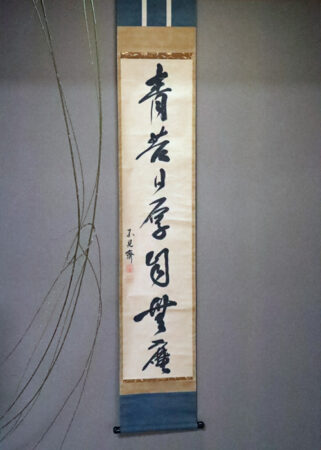 青苔日厚自無塵
不見齋